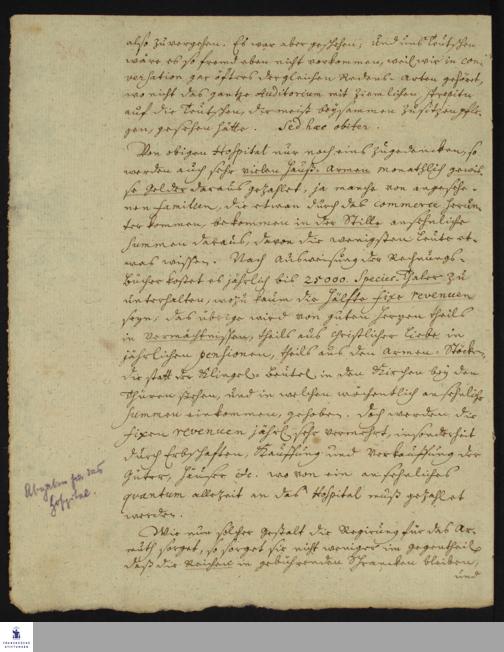 also zu vergehen. Es war aber geschehen; und uns Teutschen
wäre es so fremd eben nicht vorkommen, weil wir in con-
versation gar öfters dergleichen Redens-Arten gehört,
wo nicht das gantze Auditorium mit ziemlichen strepitu
auf die Teutschen, die meist beysammen zu sitzen pfle-
gen, gesehen hätte. Sed haec obiter.
Von obigen Hospital nur noch eins zu gedencken, so
werden auch sehr vielen Hauß-Armen monathlich gewis-
se Gelder daraus gezahlet, ja manche von angesehe-
nen familien, die etwan durch das commerce herun-
ter kommen, bekommen in der Stille ansehnliche
Summen daraus, davon die wenigsten Leute et-
was wissen. Nach Ausweisung der Rechnungs-
Bücher kostet es jährlich bis 25000. Species-Thaler zu
unterhalten, wozu kaum die Hälfte fixe revenuen
seyn; das übrige wird von guten Hertzen theils
in Vermächtnissen, theils aus Christlicher Liebe in
jährlichen pensionen, theils aus den Armen-Stöcken,
die statt der Klingel-Beutel in den Kirchen bey den
Thüren stehen, und in welchen wöchentlich ansehnliche
Summen einkommen, gehoben. Doch werden die
fixen revenuen jährl. sehr vermehrt, insonderheit
durch Erbschaften, Kauffung und Verkauffung der
Güter, Häuser &c. wovon ein ansehnliches
quantum allezeit an das Hospital muß gezahlet
werden.
Abgaben für das
Hospital.
Wie nun solcher Gestalt die Regierung für das Ar-
muth sorget, so sorget sie nicht weniger im gegentheil,
daß die Reichen in gebührenden Schrancken bleiben,
und
FRANCKESCHE
STIFTUNGEN